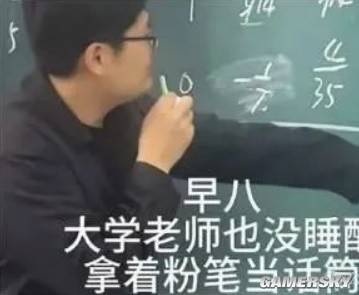 5
0
4
35
早八
大学老师也没睡醒
拿着粉笔当话筒
GAMERSKY